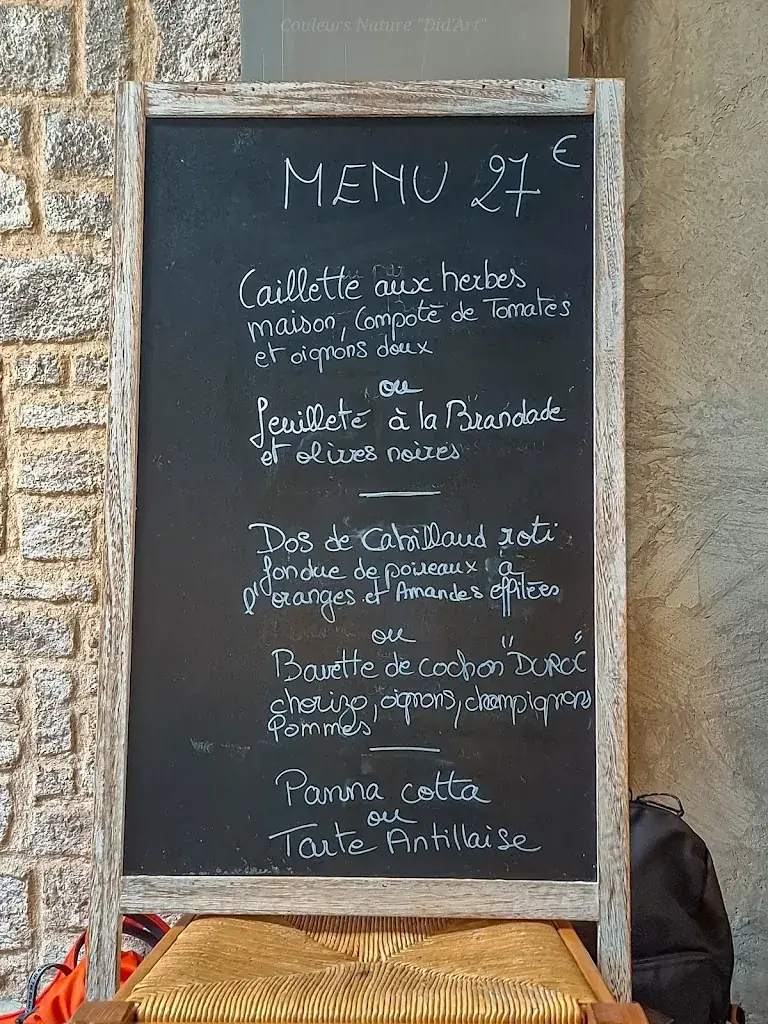 Couleurs Nature "Did'Art"
MENU 27 €
Caillette aux herbes
maison, Compote de Tomates
et oignons doux
ou
feuilleté à la Brandade
et olives noires
Dos de Cabillaud roti
fondue de poireaux à
l'oranges et Amandes effilées
ou
Bavette de cochon "DUROC"
chorizo, oignons, champignons
Pommes
Panna cotta
ou
Tarte Antillaise